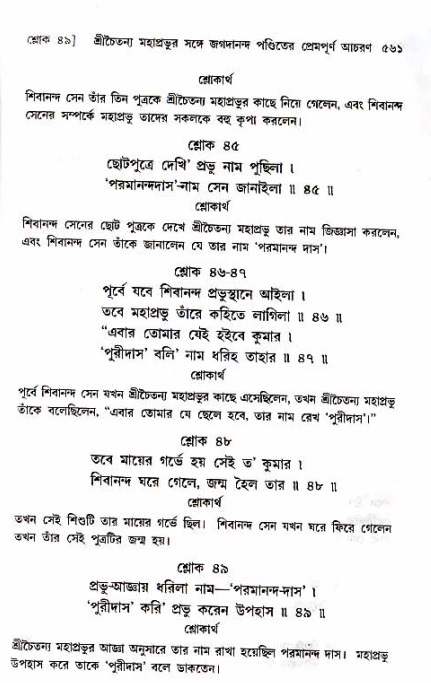 শ্লোক ৪৯] শ্রীচৈতন্য মহাপ্রভুর সঙ্গে জগদানন্দ পণ্ডিতের প্রেমপূর্ণ আচরণ ৫৬১
শ্লোকার্থ
শিবানন্দ সেন তাঁর তিন পুত্রকে শ্রীচৈতন্য মহাপ্রভুর কাছে নিয়ে গেলেন, এবং শিবানন্দ
সেনের সম্পর্কে মহাপ্রভু তাদের সকলকে বহু কৃপা করলেন।
শ্লোক ৪৫
ছোটপুত্রে দেখি' প্রভু নাম পুছিলা ।
'পরমানন্দদাস'-নাম সেন জানাইলা ॥ ৪৫ ॥
শ্লোকার্থ
শিবানন্দ সেনের ছোট পুত্রকে দেখে শ্রীচৈতন্য মহাপ্রভু তার নাম জিজ্ঞাসা করলেন,
এবং শিবানন্দ সেন তাঁকে জানালেন যে তার নাম 'পরমানন্দ দাস'।
শ্লোক ৪৬-৪৭
পূর্বে যবে শিবানন্দ প্রভুস্থানে আইলা ।
তবে মহাপ্রভু তাঁরে কহিতে লাগিলা ॥ ৪৬ ॥
"এবার তোমার যেই হইবে কুমার ।
'পুরীদাস' বলি' নাম ধরিহ তাহার ॥ ৪৭ ॥
শ্লোকার্থ
পূর্বে শিবানন্দ সেন যখন শ্রীচৈতন্য মহাপ্রভুর কাছে এসেছিলেন, তখন শ্রীচৈতন্য মহাপ্রভু
তাঁকে বলেছিলেন, "এবার তোমার যে ছেলে হবে, তার নাম রেখ 'পুরীদাস'।"
শ্লোক ৪৮
তবে মায়ের গর্ভে হয় সেই ত' কুমার ।
শিবানন্দ ঘরে গেলে, জন্ম হৈল তার ॥ ৪৮ ॥
শ্লোকার্থ
তখন সেই শিশুটি তার মায়ের গর্ভে ছিল। শিবানন্দ সেন যখন ঘরে ফিরে গেলেন
তখন তাঁর সেই পুত্রটির জন্ম হয়।
শ্লোক ৪৯
প্রভু-আজ্ঞায় ধরিলা নাম—'পরমানন্দ-দাস' ।
'পুরীদাস' করি' প্রভু করেন উপহাস ॥ ৪৯ ॥
শ্লোকার্থ
শ্রীচৈতন্য মহাপ্রভুর আজ্ঞা অনুসারে তার নাম রাখা হয়েছিল পরমানন্দ দাস। মহাপ্রভু
উপহাস করে তাকে 'পুরীদাস' বলে ডাকতেন।